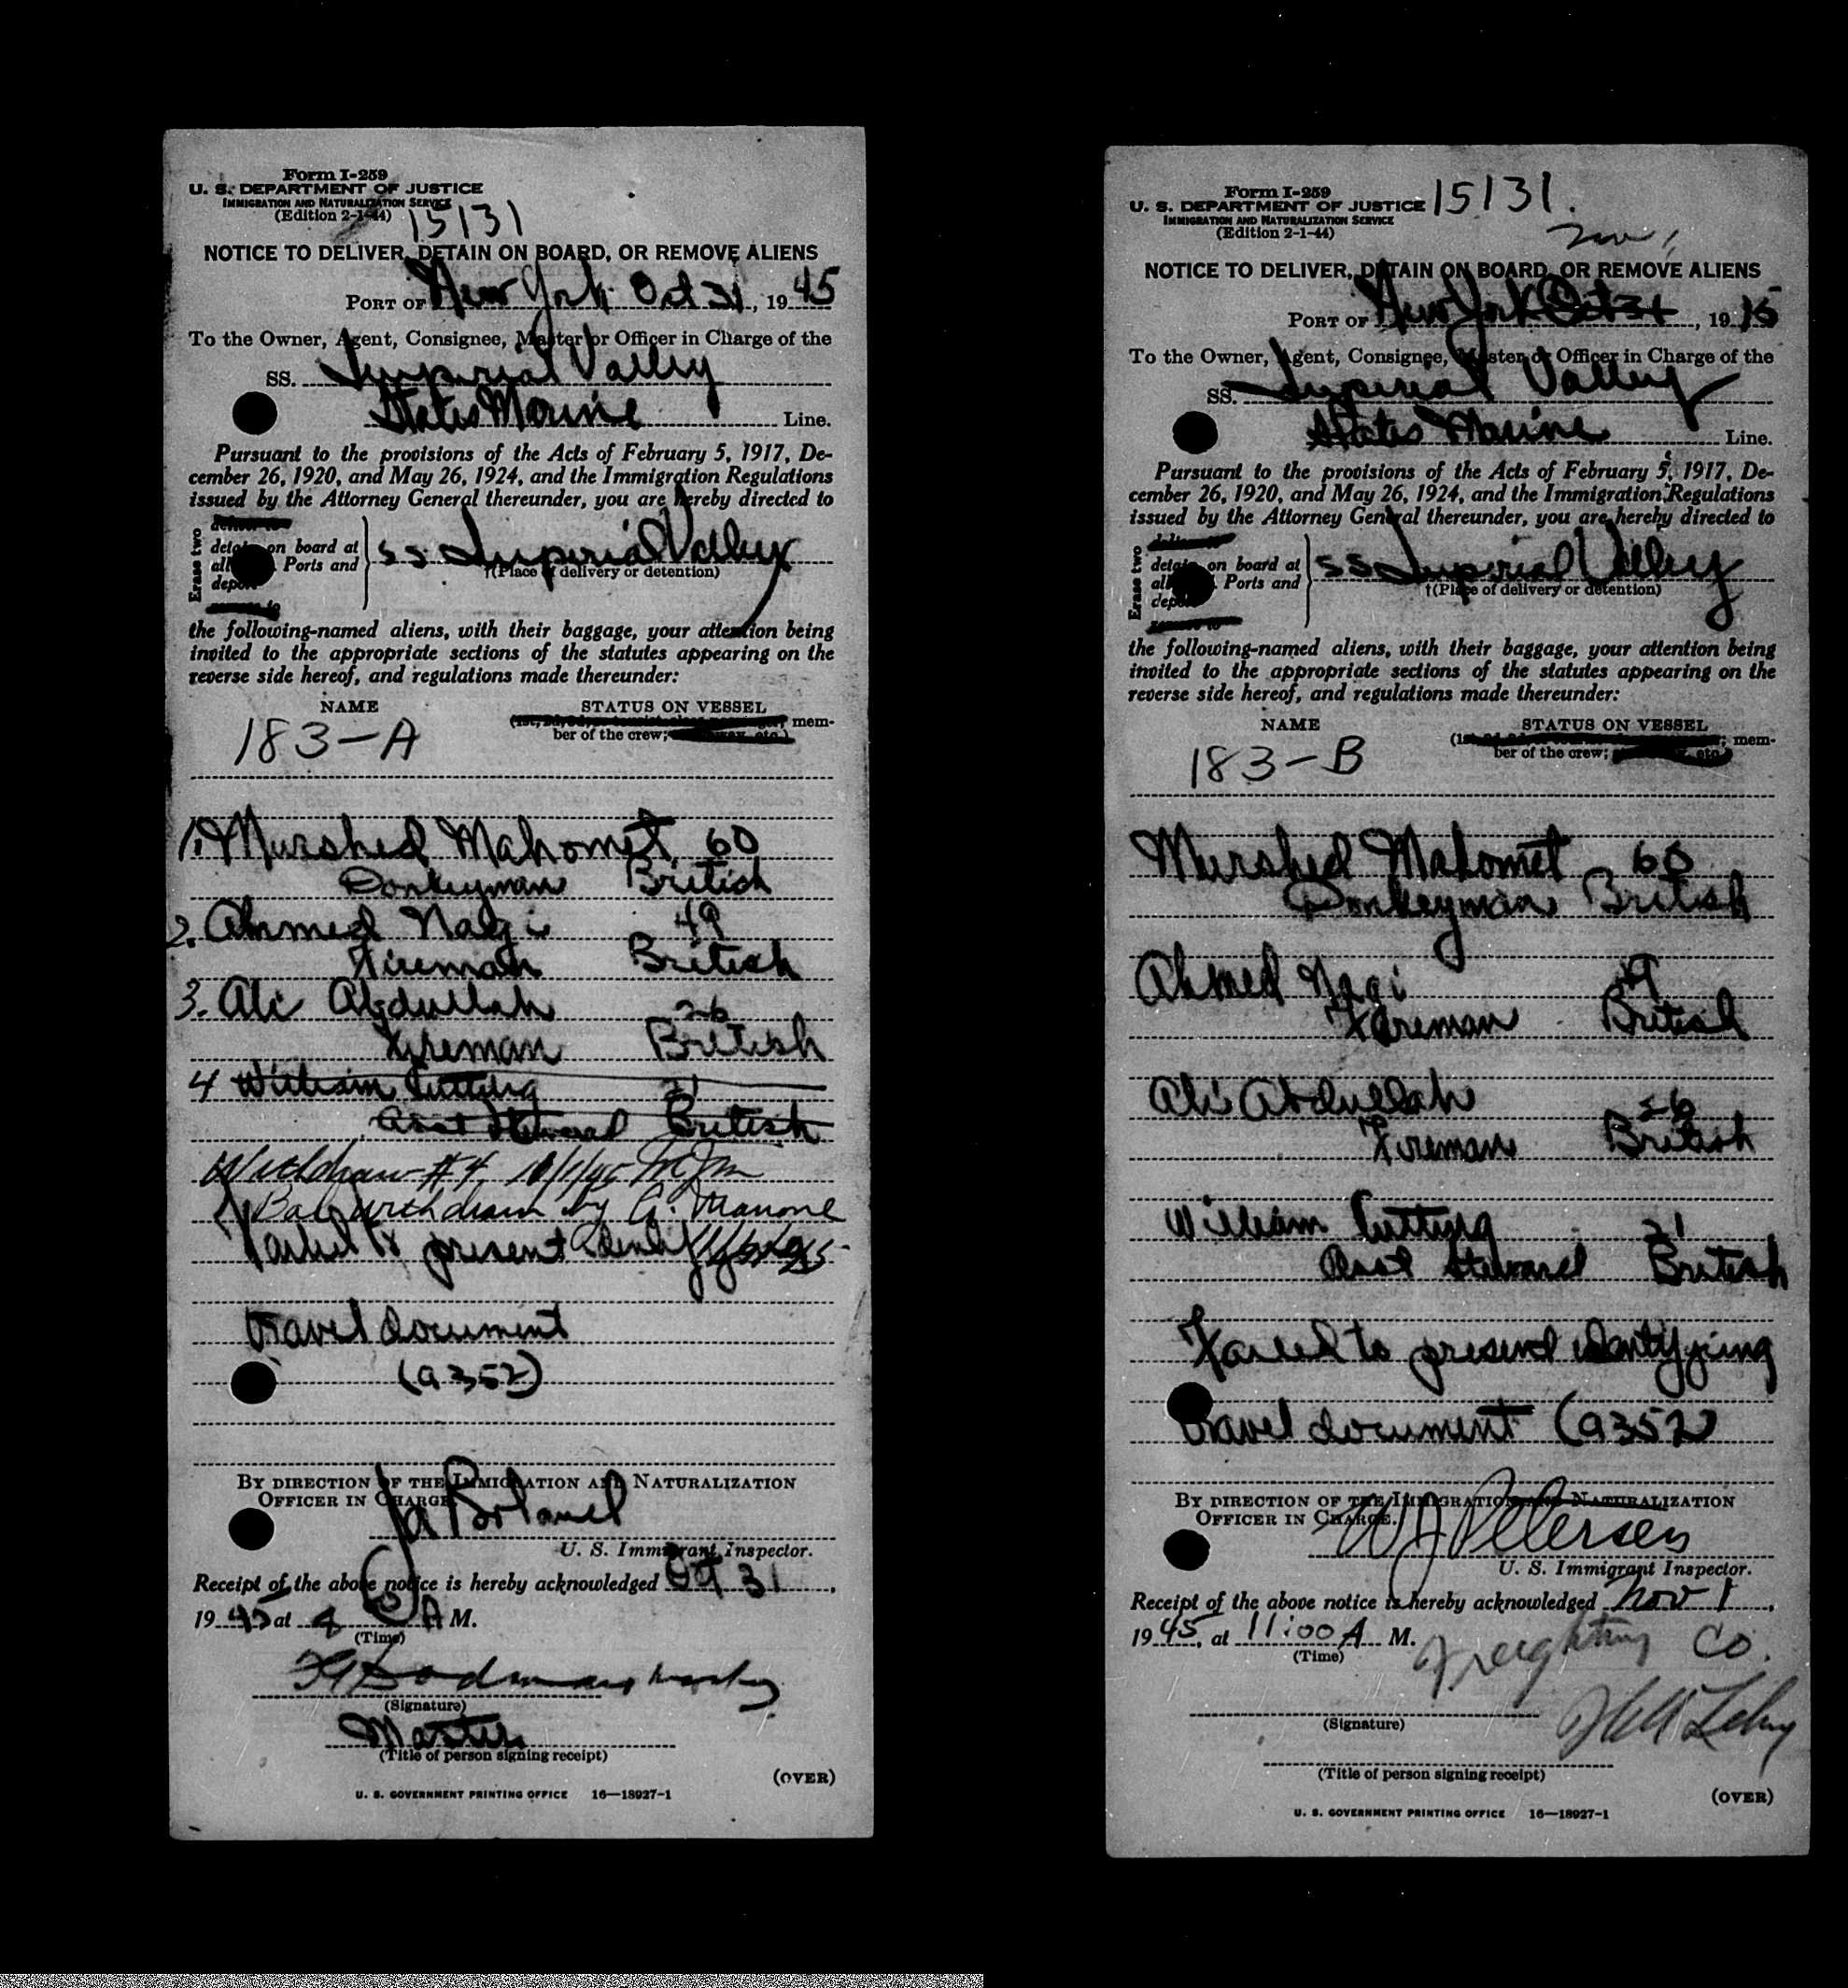 Form I-259
U. S. DEPARTMENT OF JUSTICE
IMMIGRATION AND NATURALIZATION SERVICE
(Edition 2-1-44)
15131
NOTICE TO DELIVER, DETAIN ON BOARD, OR REMOVE ALIENS
PORT OF New York Oct 31, 1945
To the Owner, Agent, Consignee, Master or Officer in Charge of the
SS. Imperial Valley
States Marine Line.
Pursuant to the provisions of the Acts of February 5, 1917, De-
cember 26, 1920, and May 26, 1924, and the Immigration Regulations
issued by the Attorney General thereunder, you are hereby directed to
Erase two
detain on board at
all Ports and
SS Imperial Valley
†(Place of delivery or detention)
the following-named aliens, with their baggage, your attention being
invited to the appropriate sections of the statutes appearing on the
reverse side hereof, and regulations made thereunder:
NAME STATUS ON VESSEL
mem-
ber of the crew;
183-A
1. Murshed Mahomet 60
Donkeyman British
2. Ahmed Nagi 49
Fireman British
3. Ali Abdullah 26
Fireman British
4 William Cutting 21
Asst Steward British
Withdrawn #4,
Bal withdrawn by G. Manone
Failed to present
travel document
(a352)
BY DIRECTION OF THE IMMIGRATION AND NATURALIZATION
OFFICER IN CHARGE.
U. S. Immigrant Inspector.
Receipt of the above notice is hereby acknowledged Oct 31,
1945 at A M.
(Time)
(Signature)
Master
(Title of person signing receipt)
(OVER)
U. S. GOVERNMENT PRINTING OFFICE 16—18927-1
Form I-259
U. S. DEPARTMENT OF JUSTICE
IMMIGRATION AND NATURALIZATION SERVICE
(Edition 2-1-44)
15131.
Nov 1
NOTICE TO DELIVER, DETAIN ON BOARD, OR REMOVE ALIENS
PORT OF New York Oct 31, 1945
To the Owner, Agent, Consignee, Master or Officer in Charge of the
SS. Imperial Valley
States Marine Line.
Pursuant to the provisions of the Acts of February 5, 1917, De-
cember 26, 1920, and May 26, 1924, and the Immigration Regulations
issued by the Attorney General thereunder, you are hereby directed to
Erase two
detain on board at
all Ports and
SS Imperial Valley
†(Place of delivery or detention)
the following-named aliens, with their baggage, your attention being
invited to the appropriate sections of the statutes appearing on the
reverse side hereof, and regulations made thereunder:
NAME STATUS ON VESSEL
mem-
ber of the crew;
183-B
Murshed Mahomet 60
Donkeyman British
Ahmed Nagi 49
Fireman British
Ali Abdullah 26
Fireman British
William Cutting 21
Asst Steward British
Failed to present identifying
travel document (a352)
BY DIRECTION OF THE IMMIGRATION AND NATURALIZATION
OFFICER IN CHARGE.
W J Petersen
U. S. Immigrant Inspector.
Receipt of the above notice is hereby acknowledged Nov 1,
1945, at 11:00 A M.
(Time)
Freighting Co.
(Signature)
(Title of person signing receipt)
(OVER)
U. S. GOVERNMENT PRINTING OFFICE 16—18927-1